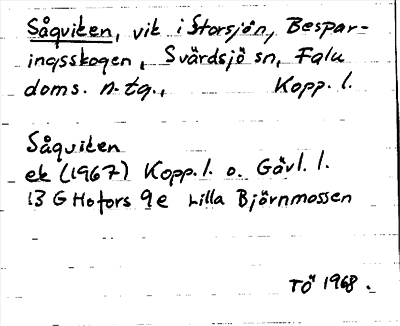 Såqviken, vik i Storsjön, Bespar-
ingsskogen, Svärdsjö sn, Falu
doms. n. tg., Kopp. l.
Såqviken
ek (1967) Kopp. l. o. Gävl. l.
13 G Hofors 9e Lilla Björnmossen
TÖ 1968.